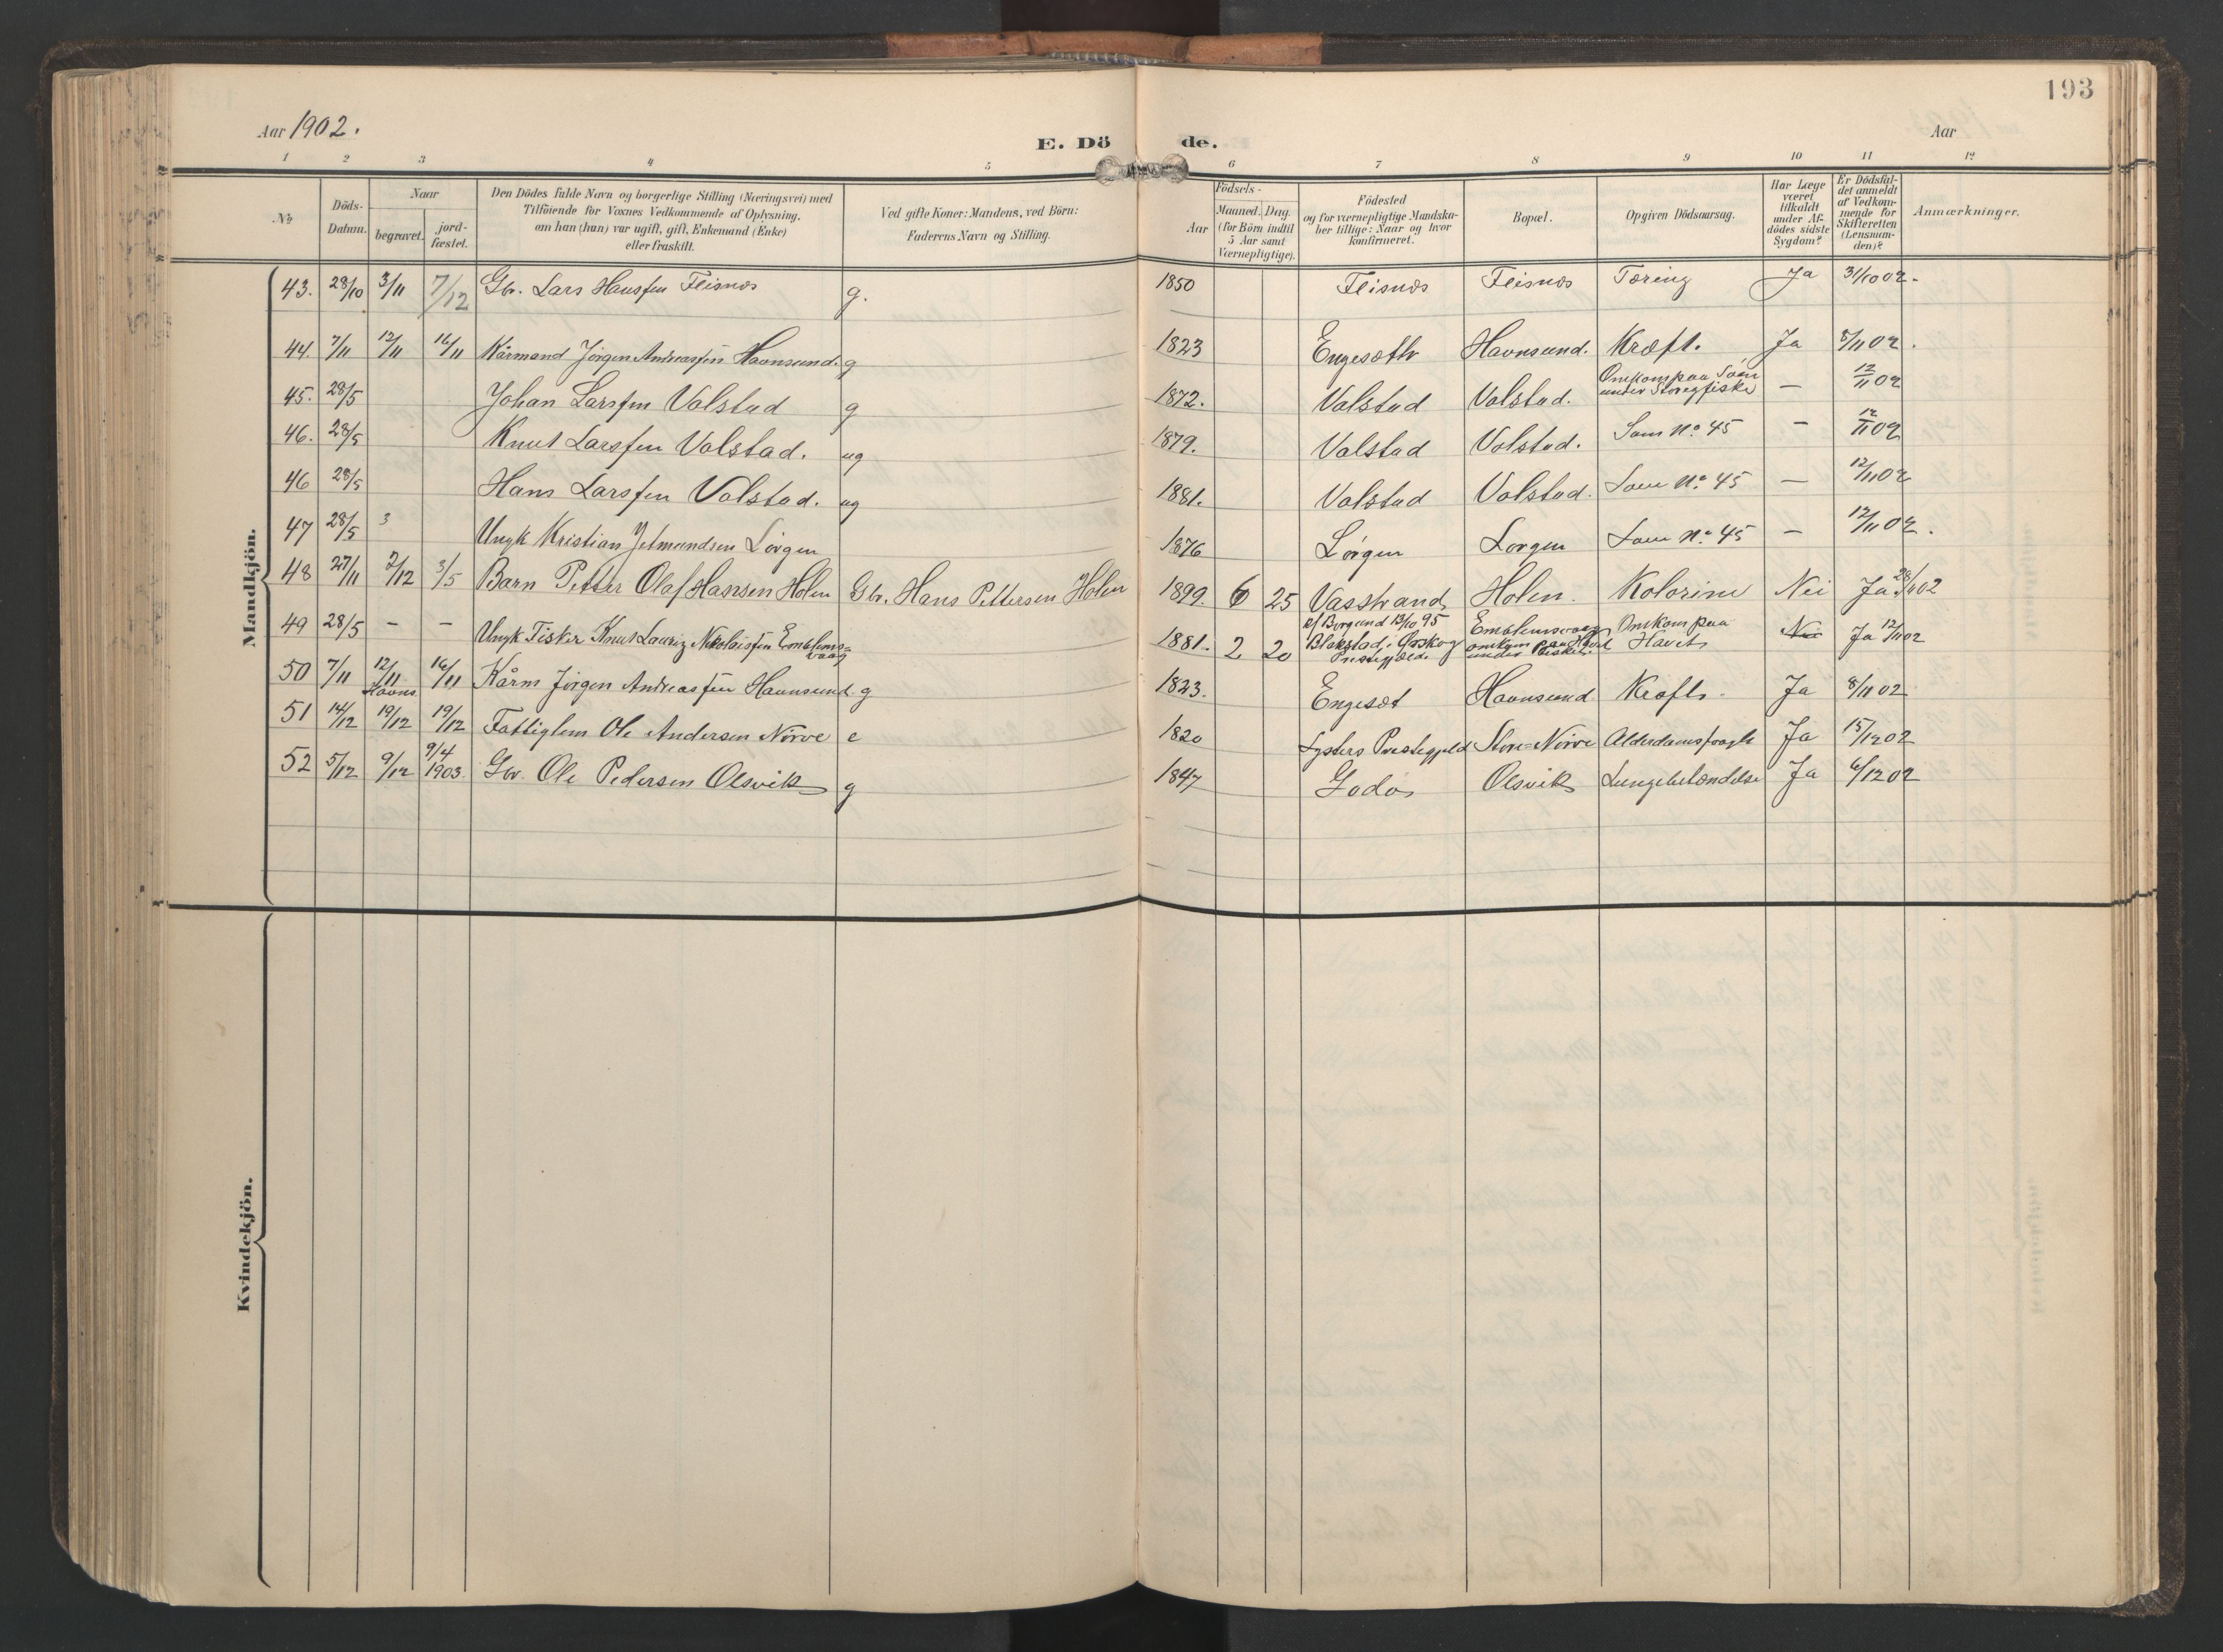 193
Aar 1902.
E. Döde.
Aar
1 2 3 4 5 6 7 8 9 10 11 12
No
Döds-Datum.
Naar
begravet.
jord-fæstet.
Den Dödes fulde Navn og borgerlige Stilling (Næringsvei) med
Tilföiende for Voxnes Vedkommende af Oplysning,
om han (hun) var ugift, gift, Enkemand (Enke)
eller fraskilt.
Ved gifte Koner: Mandens, ved Börn:
Faderens Navn og Stilling.
Födsels-
Aar
Maaned. Dag.
(for Börn indtil
5 Aar samt
Værnepligtige).
Födested
og for værnepligtige Mandska-
ber tillige: Naar og hvor
konfirmeret.
Bopæl.
Opgiven Dödsaarsag.
Har Læge
været
tilkaldt
under Af-
dödes sidste
Sygdom?
Er Dödsfal-
det anmeldt
af Vedkom-
mende for
Skifteretten
(Lensman-
den)?
Anmærkninger.
Mandkjön.
43. 28/10 3/11 7/12 Gbr. Lars Hansen Fleisnes g. 1850 Fleisnes Fleisnes Tæring Ja 31/10 02.
44. 7/11 12/11 16/11 Kårmand Jörgen Andreassen Havnsund. g 1823 Engesæth Havnsund. Kræft. Ja 8/11 02.
45. 28/5 Johan Larssen Valstad g 1872. Valstad Valstad. Omkom paa Søen under Storegfiske — 12/11 02
46. 28/5 Knut Larssen Valstad. ug 1879. Valstad Valstad. Som No 45 — 12/11 02
46 28/5 Hans Larssen Valstad. ug 1881. Valstad Valstad. Som No 45 — 12/11 02
47 28/5 3 Ungk Kristian Jetmundsen Lørgen 1876 Lørgen Lorgen Som No 45 — 12/11 02.
48 27/11 2/12 3/5 Barn Petter Olaf Hansen Holen Gbr. Hans Pettersen Holen 1899. 6 25 Vasstrand Holen. Kolerine Nei Ja 28/11 02
49 28/5 — — Ungk Fisker Knut Lauriz Nikolaisen Emblems=vaag 1881. 2 20 k/ Borgund 13/10 95 Blakstad i Ørskog Prestegjæld. Emblemsvaag omkom paa Havet under Fiske. Omkom paa Havet Nei Ja 12/11 02
50 7/11 12/11 Havns 16/11 Kårm Jörgen Andreassen Havnsund. g 1823. Engeset Havnsund Kræft. Ja 8/11 02
51 14/12 19/12 19/12 Fattiglem Ole Andersen Nörve e 1820 Lysters Prestegjeld Store=Nörve Alderdomssvaghed Ja 15/12 02
52 5/12 9/12 9/4 1903. Gbr. Ole Pedersen Olsvik g 1847 Godø Olsvik Lungebetændelse Ja 6/12 02
Kvindekjön.